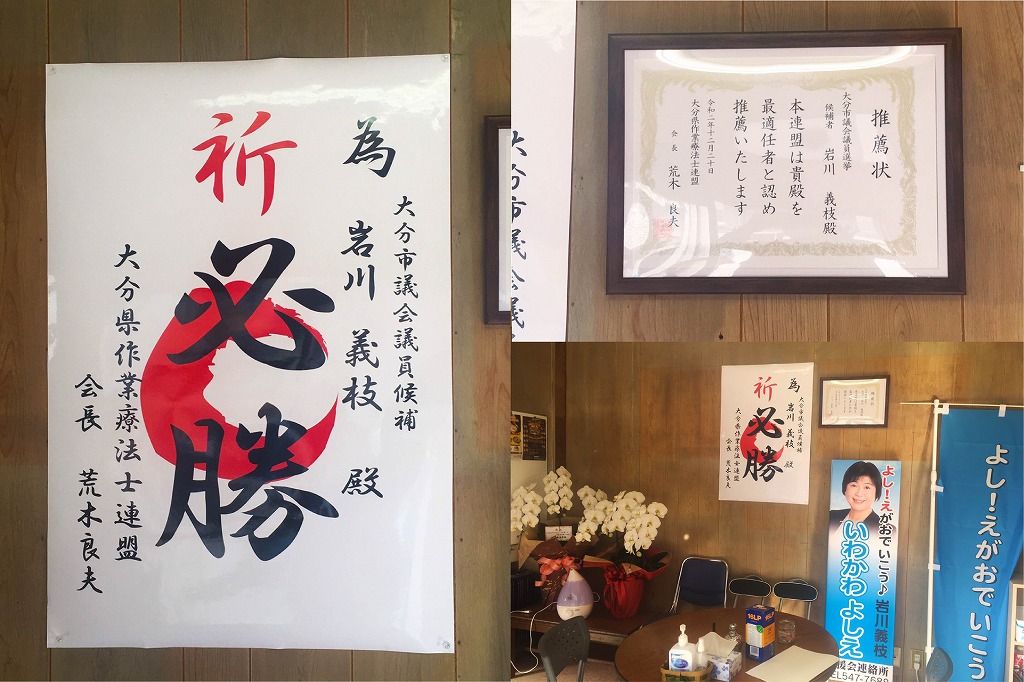 祈
必勝
為
大分市議会議員候補
岩川 義枝 殿
大分県作業療法士連盟
会長 荒木良夫
大分市議会議
推薦状
大分市議会議員選挙
候補者 岩川 義枝殿
本連盟は貴殿を
最適任者と認め
推薦いたします
令和二年十二月二十日
大分県作業療法士連盟
会長 荒木 良夫
祈
必勝
為
大分市議会議員候補
岩川 義枝 殿
大分県作業療法士連盟
会長 荒木良夫
よし!えがおでいこう♪
岩川義枝
いわかわよしえ
援会連絡所
EL547-7680
よし!えがおでいこう
16LP